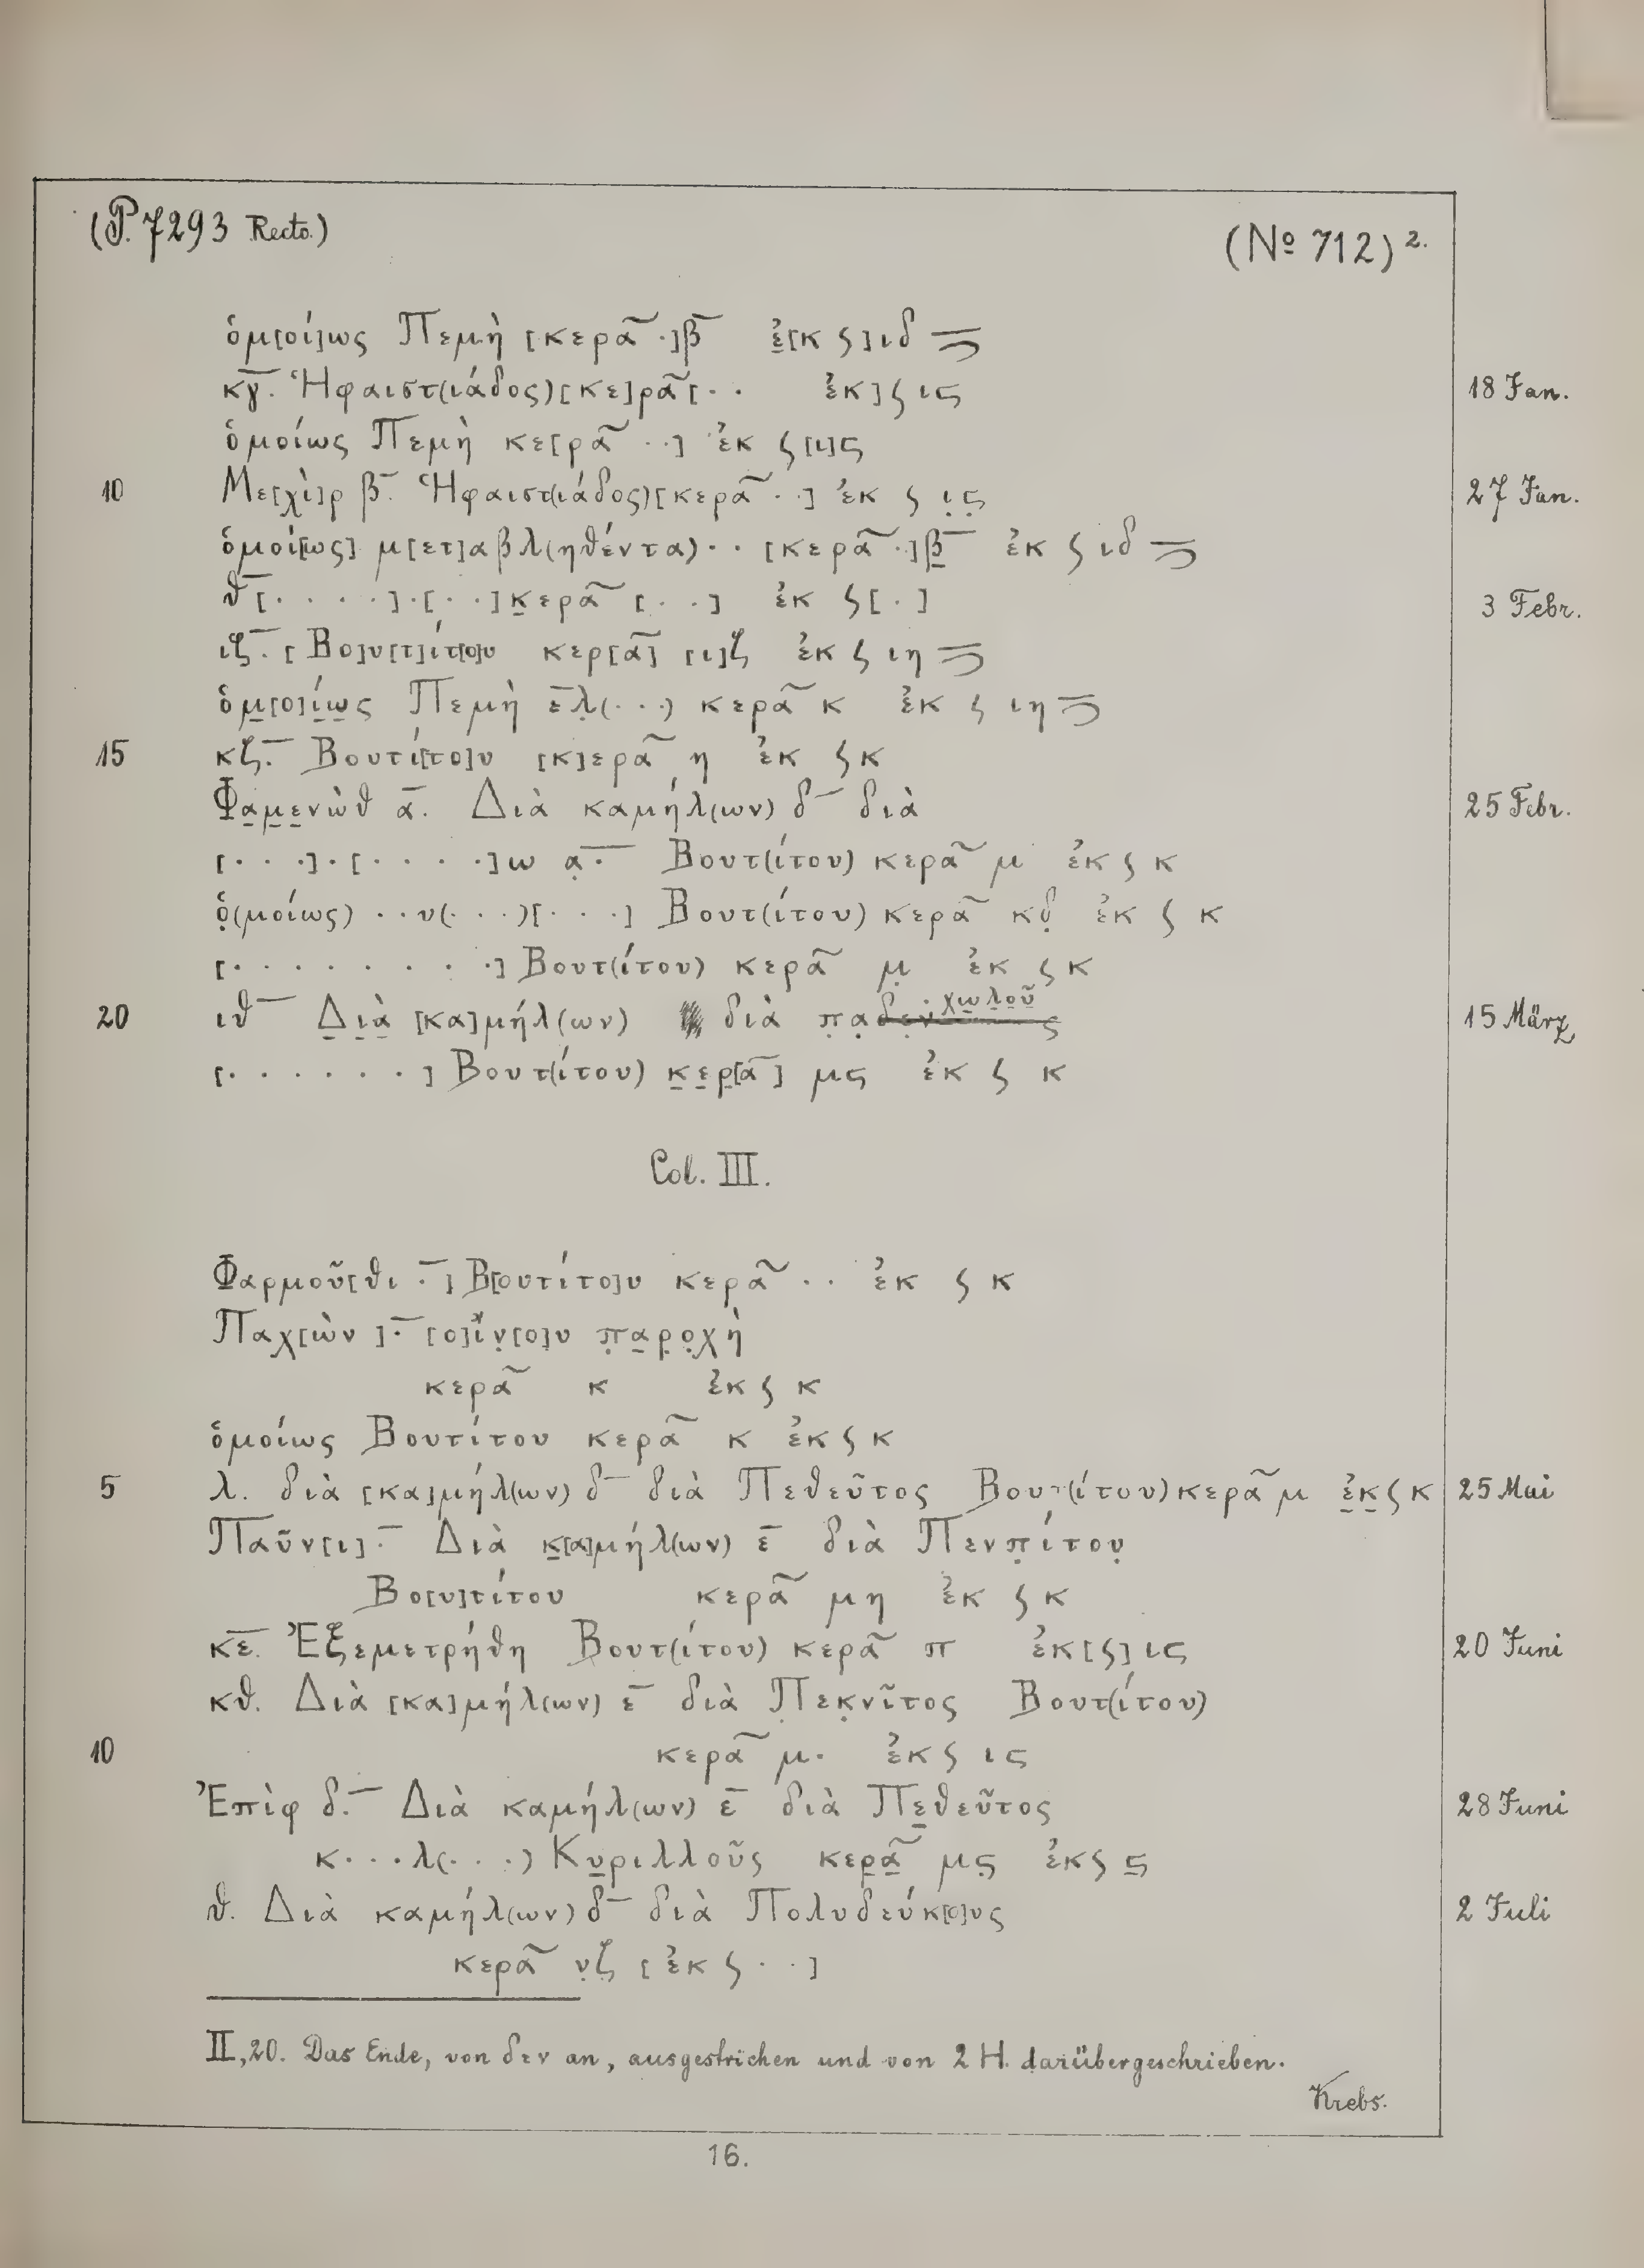 (P. 7293 Recto.) (Nº 712) 2.
ὁμ[οί]ως Πεμὴ [κερᾶ ·]β̅ ἐ̣[κ ϛ]ιδ =
κγ̅. Ἡφαιστ(ιάδος)[κε]ρᾶ[·· ἐκ]ϛ ις 18 Jan.
ὁμοίως Πεμὴ κε[ρᾶ ··] ἐκ ϛ[ι]ς
10 Με[χὶ]ρ β̅. Ἡφαιστ(ιάδος)[κερᾶ ··] ἐκ ϛ ι̣ς̣ 27 Jan.
ὁμοί[ως] μ[ετ]αβλ(ηθέντα)·· [κερᾶ ·]β̣̅ ἐκ ϛ ιδ =
θ̅[····]·[··]κ̣ερᾶ [··] ἐκ ϛ[·] 3 Febr.
ιζ̅. [Βο]υ[τ]ίτ[ο]υ κερ[ᾶ] [ι]ζ ἐκ ϛ ιη =
ὁμ̣[ο]ί̣ω̣ς Πεμὴ ε̅λ̣(···) κερᾶ κ ἐκ ϛ ιη =
15 κζ̅. Βουτί[το]υ [κ]ερᾶ η ἐκ ϛ κ
Φα̣μ̣ε̣νὼθ α̅. Διὰ καμήλ(ων) δ̅ διὰ 25 Febr.
[···]·[····]ω α̣·̅ Βουτ(ίτου) κερᾶ μ ἐκ ϛ κ
ὁ̣(μοίως) ··υ(···)[···] Βουτ(ίτου) κερᾶ κδ̣ ἐκ ϛ κ
[········] Βουτ(ίτου) κερᾶ μ̣ ἐκ ϛ κ
χω̣λ̣ο̣ῦ̣
20 ιθ̅ Δ̣ι̣ὰ̣ [κα]μήλ(ων) διὰ π̣α̣δ̣ε̣ν̣ ς 15 März
[······] Βουτ(ίτου) κ̣ε̣ρ̣[ᾶ] μς ἐκ ϛ κ
Col. III.
Φαρμοῦ[θι ·̅] Β[ουτίτο]υ κερᾶ ·· ἐκ ϛ κ
Παχ[ὼν ]·̅ [ο]ἴν̣[ο]υ π̣α̣ρ̣ο̣χὴ
κερᾶ κ ἐκ ϛ κ
ὁμοίως Βουτίτου κερᾶ κ ἐκ ϛ κ
5 λ. διὰ [κα]μήλ(ων) δ̅ διὰ Πεθεῦτος Βουτ(ίτου) κερᾶ μ ἐ̣κ̣ ϛ κ 25 Mai
Παῦν[ι]·̅ Διὰ κ̣[α]μήλ(ων) ε̅ διὰ Πενπ̣ίτου̣
Βο[υ]τίτου κερᾶ μη ἐκ ϛ κ
κε̅. Ἐξεμετρήθη Βουτ(ίτου) κερᾶ π ἐκ[ϛ] ις 20 Juni
κθ. Διὰ [κα]μήλ(ων) ε̅ διὰ Π̣εκ̣νῖτος Βουτ(ίτου)
10 κερᾶ μ· ἐκ ϛ ις
Ἐπὶφ δ.̅ Διὰ καμήλ(ων) ε̅ διὰ Πε̣θεῦτος 28 Juni
κ···λ(···) Κυ̣ριλλοῦς κερ̣ᾶ̣ μς̣ ἐκ ϛ ς̣
θ. Διὰ καμήλ(ων) δ̅ διὰ Πολυδεύκ[ο]υς 2 Juli
κερᾶ ν̣ζ̣ [ἐκ ϛ ··]
II,20. Das Ende, von δεν an, ausgestrichen und von 2 H. darübergeschrieben.
Krebs.
16.